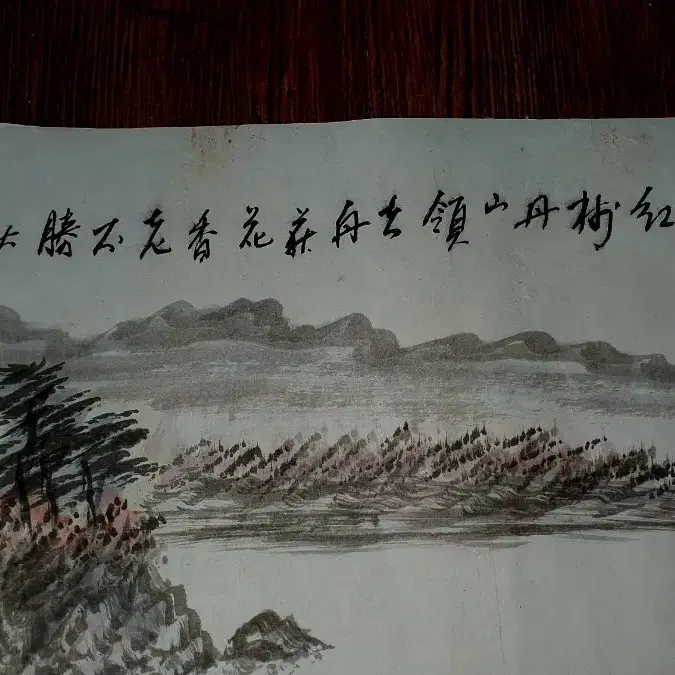 红树丹山領去舟荻花香老不勝